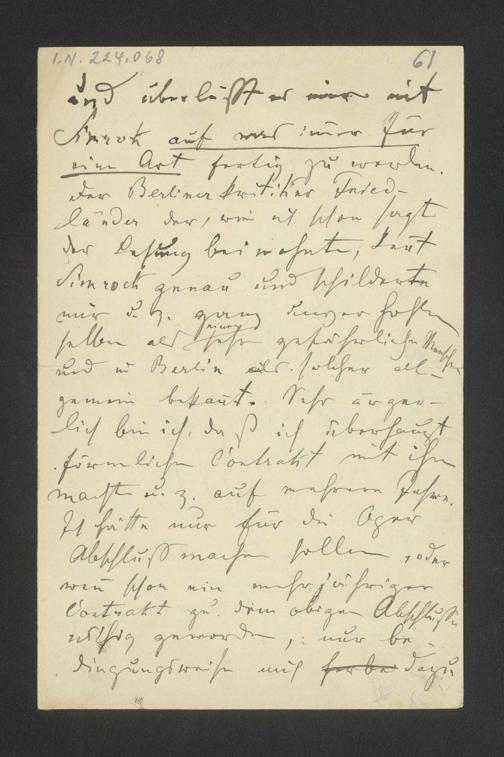 I.N. 224.068
61
und überlässt es mir mit
Simrock auf was immer für
eine Art fertig zu werden.
Der Berliner Kritiker Fried-
länder der, wie ich schon sagt
der Lesung beiwohnte, kent
Simrock genau und schilderte
mir u. z. ganz unverhohlen
selben als einen sehr gefährlichen Menschen
und in Berlin als solcher all-
gemein bekant. Sehr ärger-
lich bin ich, daß ich überhaupt
förmlichen Contrakt mit ihm
machte u. z. auf mehrere Jahre.
Ich hätte nur für die Oper
Abschluss machen sollen, oder
wen schon ein mehrjähriger
Contrakt zu dem obigen Abschlusse
nöthig geworden, nur be
dingungsweise mich dazu